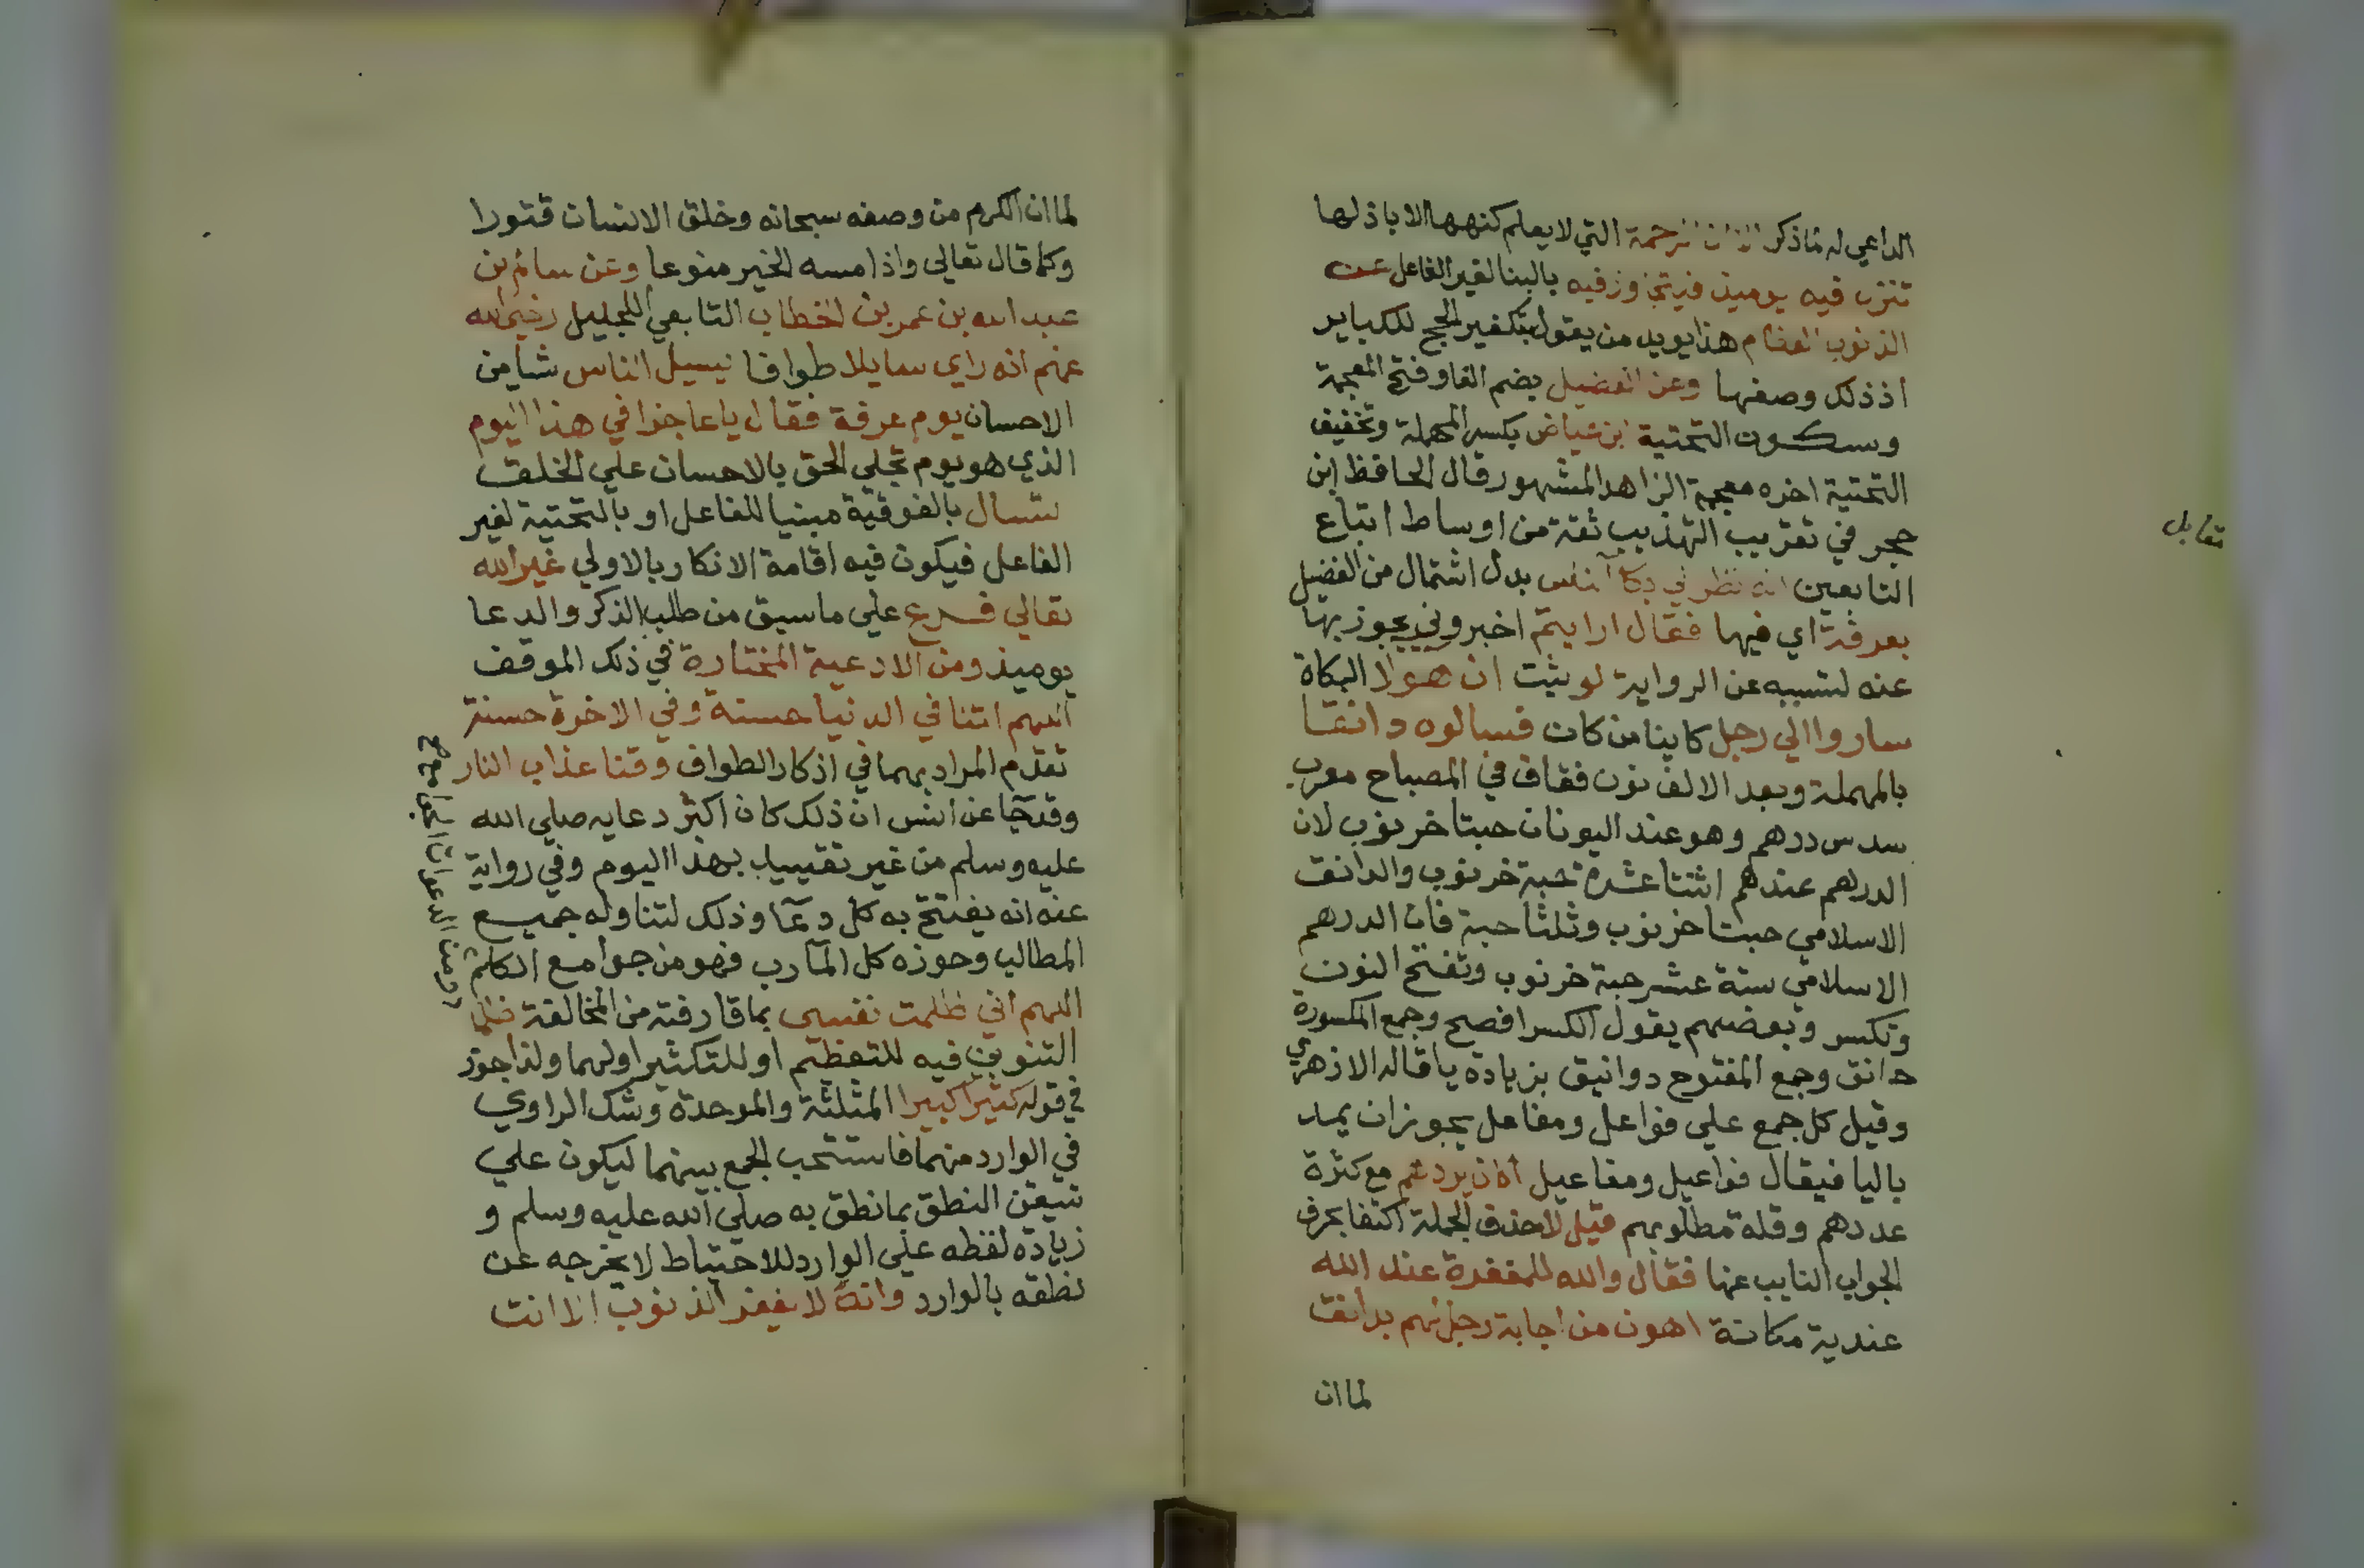 الداعي له لما ذكر الرحمة التي لا يعلم كنهها الا باذلها
تنزل فيه يوميذ فيتجاوز فيه بالبنا لغير الفاعل عن
الذنوب العظام هذا يويد من يقول بتكفير الحج للكباير
اذ ذلك وصفها وعن الفضيل بضم الفا وفتح المعجمة
وسكون التحتية ابن عياض بكسر المهملة وتخفيف
التحتية اخره معجمة الزاهد المشهور قال الحافظ ابن
حجر في تقريب التهذيب ثقة من اوساط اتباع
التابعين انه نظر في بكا الناس بدل اشتمال من الفضيل
بعرفة اي فيها فقال ارايتم اخبروني يجوز بها
عنه لتسببه عن الرواية لو ثبت ان هولا البكاة
ساروا الي رجل كاينا من كان فسالوه دانقا
بالمهملة وبعد الالف نون فقاف في المصباح معرب
سدس درهم وهو عند اليونان حبتا خرنوب لان
الدرهم عندهم اثنتا عشرة حبة خرنوب والدانق
الاسلامي حبتا خرنوب وثلثا حبة فان الدرهم
الاسلامي ستة عشر حبة خرنوب وتفتح النون
وتكسر وبعضهم يقول الكسر افصح وجمع المكسورة
دانق وجمع المفتوح دوانيق بزيادة يا قاله الازهري
وقيل كل جمع علي فواعل ومفاعل يجوز ان يمد
باليا فيقال فواعيل ومفاعيل اكان يردهم مع كثرة
عددهم وقلة مطلوبهم قيل لا حذف الجملة اكتفا بحرف
الجواب النايب عنها فقال والله للمغفرة عند الله
عندية مكانة اهون من اجابة رجل لهم بدانق
لما ان
تقابل
لما ان الكرم من وصفه سبحانه وخلق الانسان قتورا
وكما قال تعالي واذا مسه الخير منوعا وعن سالم بن
عبد الله بن عمر بن الخطاب التابعي الجليل رضي الله
عنهم انه راي سايلا طوافا يسيل الناس شيا من
الاحسان يوم عرفة فقال يا عاجزا في هذا اليوم
الذي هو يوم تجلي الحق بالاحسان علي الخلق
تسال بالفوقية مبنيا للفاعل او بالتحتية لغير
الفاعل فيكون فيه اقامة الانكار بالاولي غير الله
تعالي فرع علي ما سبق من طلب الذكر والدعا
يوميذ ومن الادعية المختارة في ذلك الموقف
اللهم اتنا في الدنيا حسنة وفي الاخرة حسنة
تقدم المراد بهما في اذكار الطواف وقنا عذاب النار
وقد جا عن انس ان ذلك كان اكثر دعايه صلي الله
عليه وسلم من غير تقييد بهذا اليوم وفي رواية
عنه انه يفتتح به كل دعا وذلك لتناوله جميع
المطالب وحوزه كل المآرب فهو من جوامع الكلم
اللهم اني ظلمت نفسي بما قارفته من المخالفة ظلما
التنوين فيه للتعظيم او للتكثير او لهما ولذا جوز
في قوله كثيرا كبيرا المثلثة والموحدة وشك الراوي
في الوارد منهما فاستحب الجمع بينهما ليكون علي
تيقن النطق بما نطق به صلي الله عليه وسلم و
زيادة لفظه علي الوارد للاحتياط لا يخرجه عن
نطقه بالوارد وانه لا يغفر الذنوب الا انت